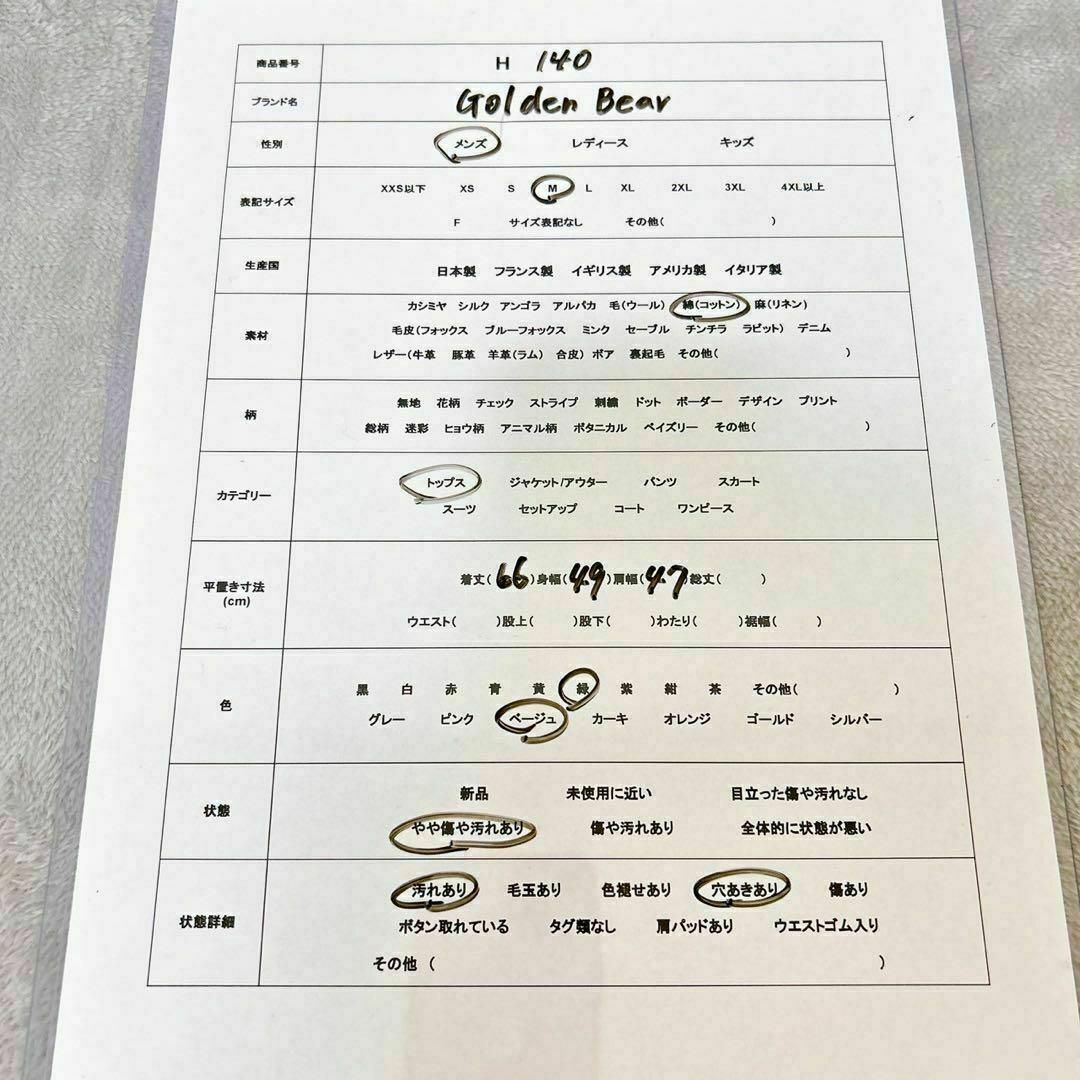 商品番号 H 140
ブランド名 Golden Bear
性別 メンズ レディース キッズ
表記サイズ XXS以下 XS S M L XL 2XL 3XL 4XL以上
F サイズ表記なし その他( )
生産国 日本製 フランス製 イギリス製 アメリカ製 イタリア製
素材 カシミヤ シルク アンゴラ アルパカ 毛(ウール) 綿(コットン) 麻(リネン)
毛皮(フォックス ブルーフォックス ミンク セーブル チンチラ ラビット) デニム
レザー(牛革 豚革 羊革(ラム) 合皮) ボア 裏起毛 その他( )
柄 無地 花柄 チェック ストライプ 刺繍 ドット ボーダー デザイン プリント
総柄 迷彩 ヒョウ柄 アニマル柄 ボタニカル ペイズリー その他( )
カテゴリー トップス ジャケット/アウター パンツ スカート
スーツ セットアップ コート ワンピース
平置き寸法 (cm) 着丈(66)身幅(49)肩幅(47)総丈( )
ウエスト( )股上( )股下( )わたり( )裾幅( )
色 黒 白 赤 青 黄 緑 紫 紺 茶 その他( )
グレー ピンク ベージュ カーキ オレンジ ゴールド シルバー
状態 新品 未使用に近い 目立った傷や汚れなし
やや傷や汚れあり 傷や汚れあり 全体的に状態が悪い
状態詳細 汚れあり 毛玉あり 色褪せあり 穴あきあり 傷あり
ボタン取れている タグ類なし 肩パッドあり ウエストゴム入り
その他 ( )